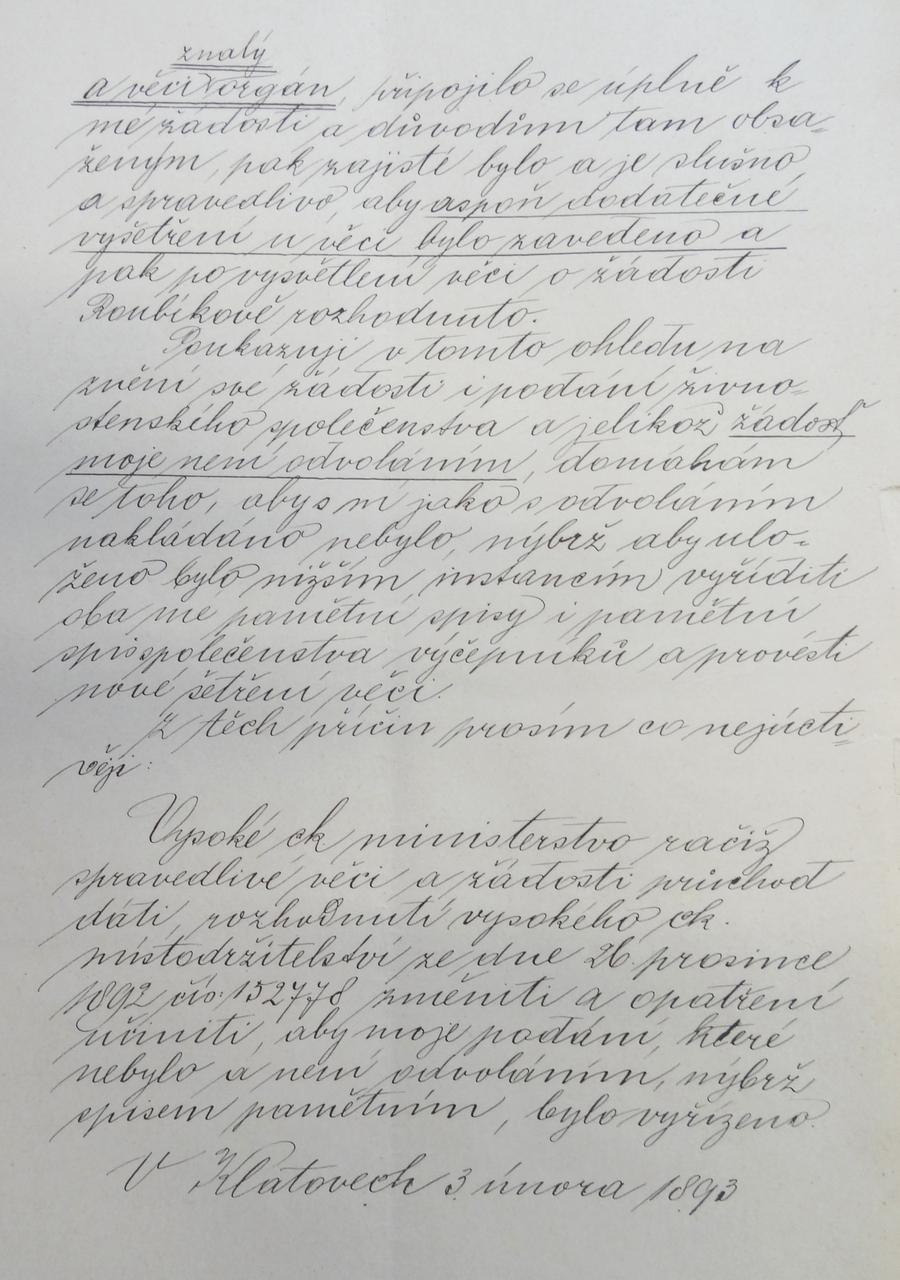 znalý
a věci orgán, připojilo se úplně k
mé žádosti a důvodům tam obsa-
ženým, pak zajisté bylo a je slušno
a spravedlivo, aby aspoň dodatečné
vyšetření u věci bylo zavedeno a
pak po vysvětlení věci o žádosti
Roubíkově rozhodnuto.
Poukazuji v tomto ohledu na
znění své žádosti i podání živno-
stenského společenstva a jelikož žádosť
moje není odvoláním, domáhám
se toho, aby s ní jako s odvoláním
nakládáno nebylo, nýbrž aby ulo-
ženo bylo nižším instancím vyříditi
oba mé pamětní spisy i pamětní
spis společenstva výčepníků a provésti
nové šetření věci.
Z těch příčin prosím co nejúcti-
věji:
Vysoké ck ministerstvo račiž
spravedlivé věci a žádosti průchod
dáti, rozhodnutí vysokého ck.
místodržitelství ze dne 26. prosince
1892 čís: 152778 změniti a opatření
učiniti, aby moje podání, které
nebylo a není odvoláním, nýbrž
spisem pamětním, bylo vyřízeno.
V Klatovech 3. února 1893